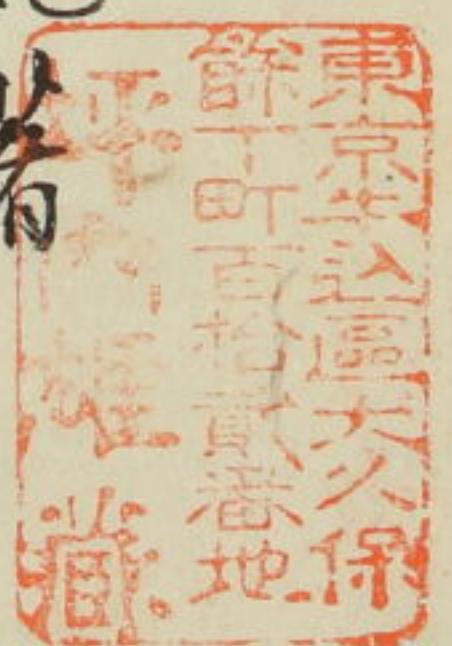 東京牛込區大久保
餘丁町百拾貳番地
坪内雄藏
著